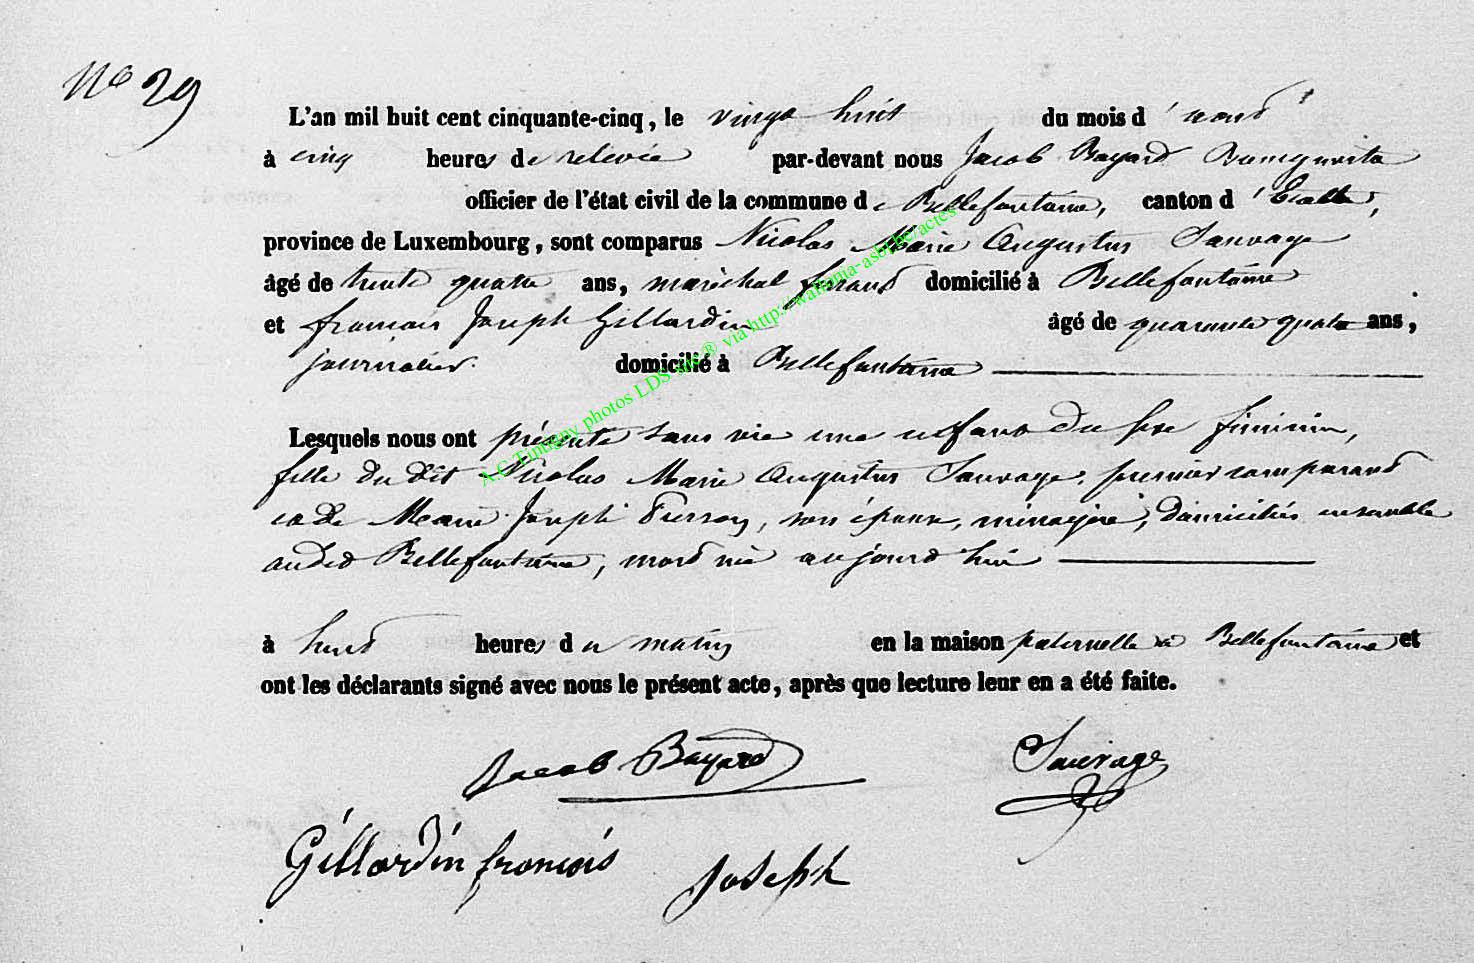 N° 29
L'an mil huit cent cinquante-cinq, le vingt huit du mois d'aout
à cinq heures de relevée par-devant nous Jacob Bayard Bourgmestre
officier de l'état civil de la commune de Bellefontaine, canton d'Etalle,
province de Luxembourg, sont comparus Nicolas Marie Augustin Sauvage
âgé de trente quatre ans, maréchal ferant domicilié à Bellefontaine
et francois Joseph Gillardin âgé de quarante quatre ans,
journalier. domicilié à Bellefontaine
Lesquels nous ont présenté sans vie une enfant du sexe féminin,
fille du dit Nicolas Marie Augustin Sauvage, premier comparant
et de Marie Joseph Pierson, son épouse, ménagère, domiciliés ensemble
audit Bellefontaine, mort née aujourd'hui
à huit heures du matin en la maison paternelle à Bellefontaine et
ont les déclarants signé avec nous le présent acte, après que lecture leur en a été faite.
Jacob Bayard Sauvage
Gillardin francois Joseph
A.C. Tintigny photos LDS sur ® via http://wallonia-asbl.be/actes